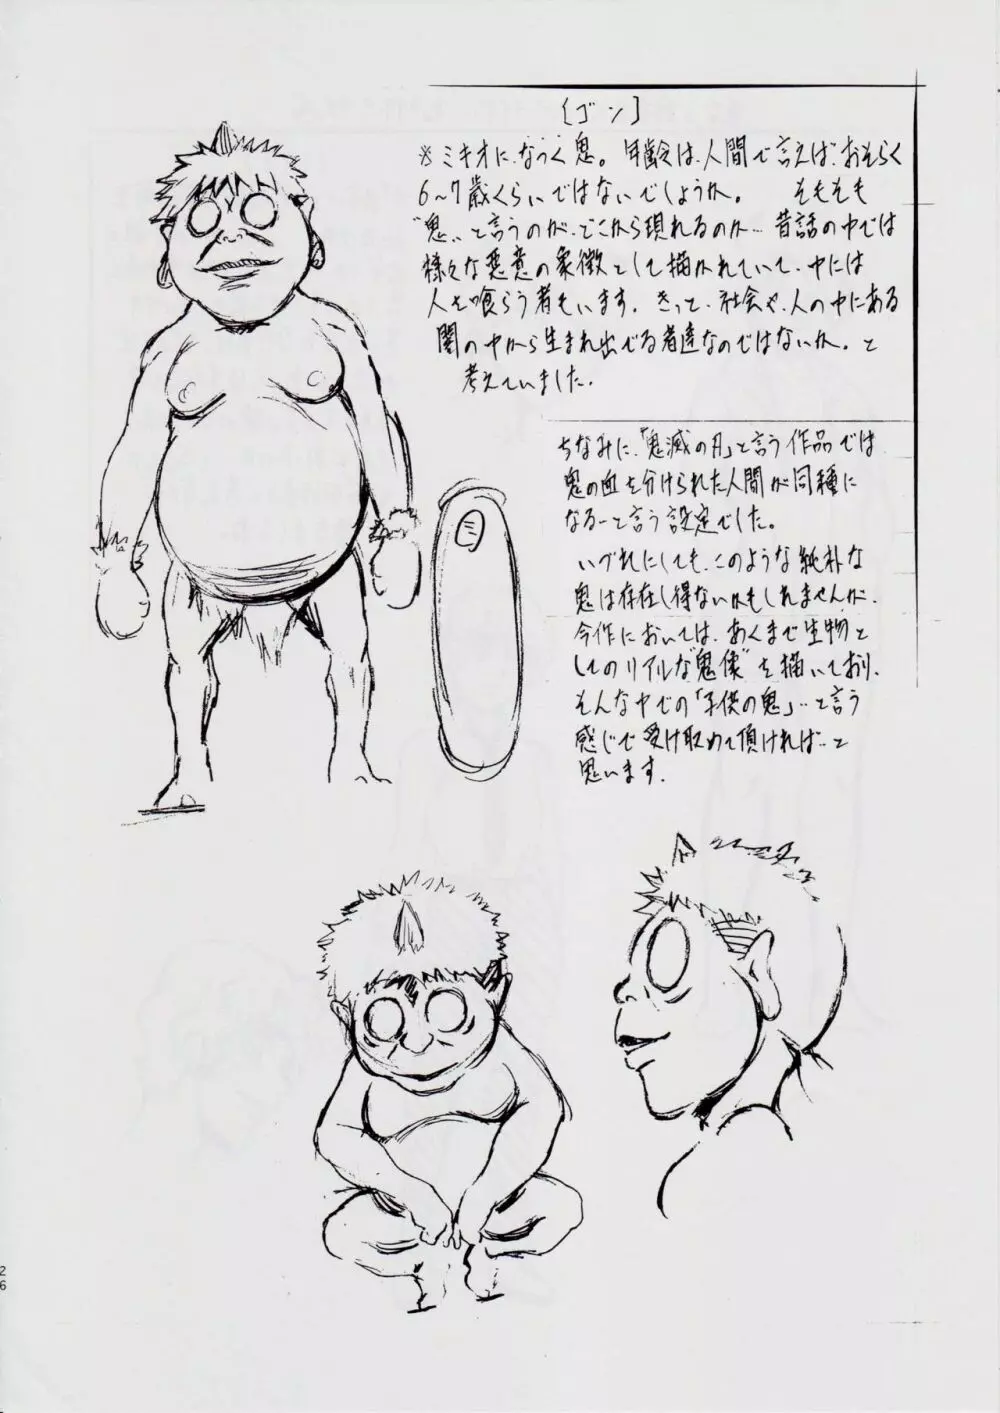 [ゴン]
※ミキオに、なつく鬼。年齢は、人間で言えば、おそらく
6〜7歳くらいではないでしょうか。 そもそも
"鬼"と言うのが、どこから現れるのか…昔話の中では
様々な悪意の象徴として描かれていて、中には
人を喰らう者もいます。きっと、社会や、人の中にある
闇の中から生まれ出でる者達なのではないか。と
考えていました。
ちなみに、「鬼滅の刃」と言う作品では
鬼の血を分けられた人間が同種に
なる…と言う設定でした。
いづれにしても、このような純朴な
鬼は存在し得ないかもしれませんが、
今作においては、あくまで生物と
してのリアルな"鬼像"を描いており、
そんな中での「子供の鬼」…と言う
感じで受け取めて頂ければ…と
思います。
ミ
26